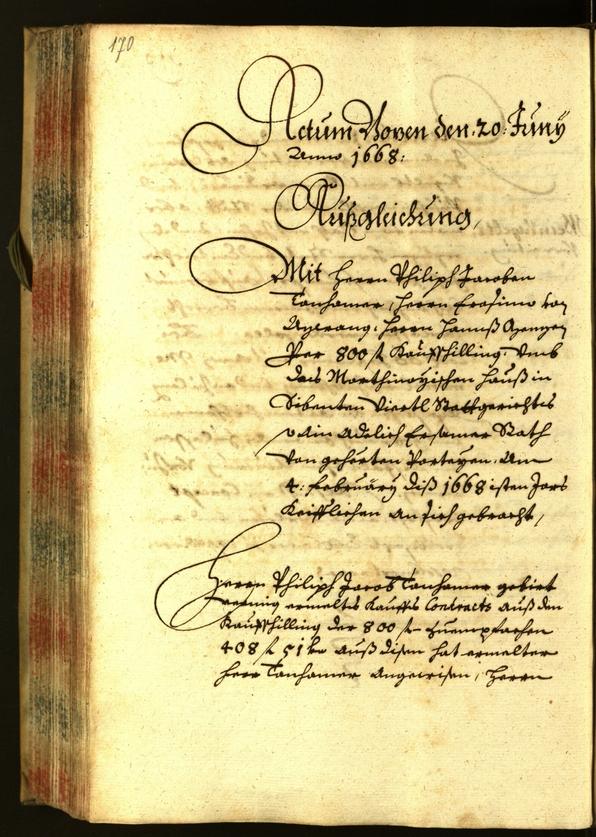 170
Actum Bozen den 20: Juny
Anno 1668:
Außgleichung,
Mit Herrn Philiph Jacoben
Tanhamer, Herrn Erasimo von
Herrn Hannß
Per 800 f Kauffschilling, umb
das Marthinoyischen Hauß in
Sibenten Viertl Stattgerichts
ain Adelich Ersamer Rath
von gehörten Parteyen, Am
4: February diß 1668isten Jars
Keifflichen an sich gebracht,
Herrn Philiph Jacob Tanhamer gebirt
vermig ermeltes Kauffs Contracts auß den
Kauffschilling der 800 f zu empfachen
408 f 51 kr auß disen hat ermelter
Herr Tanhamer Angewisen, Herrn